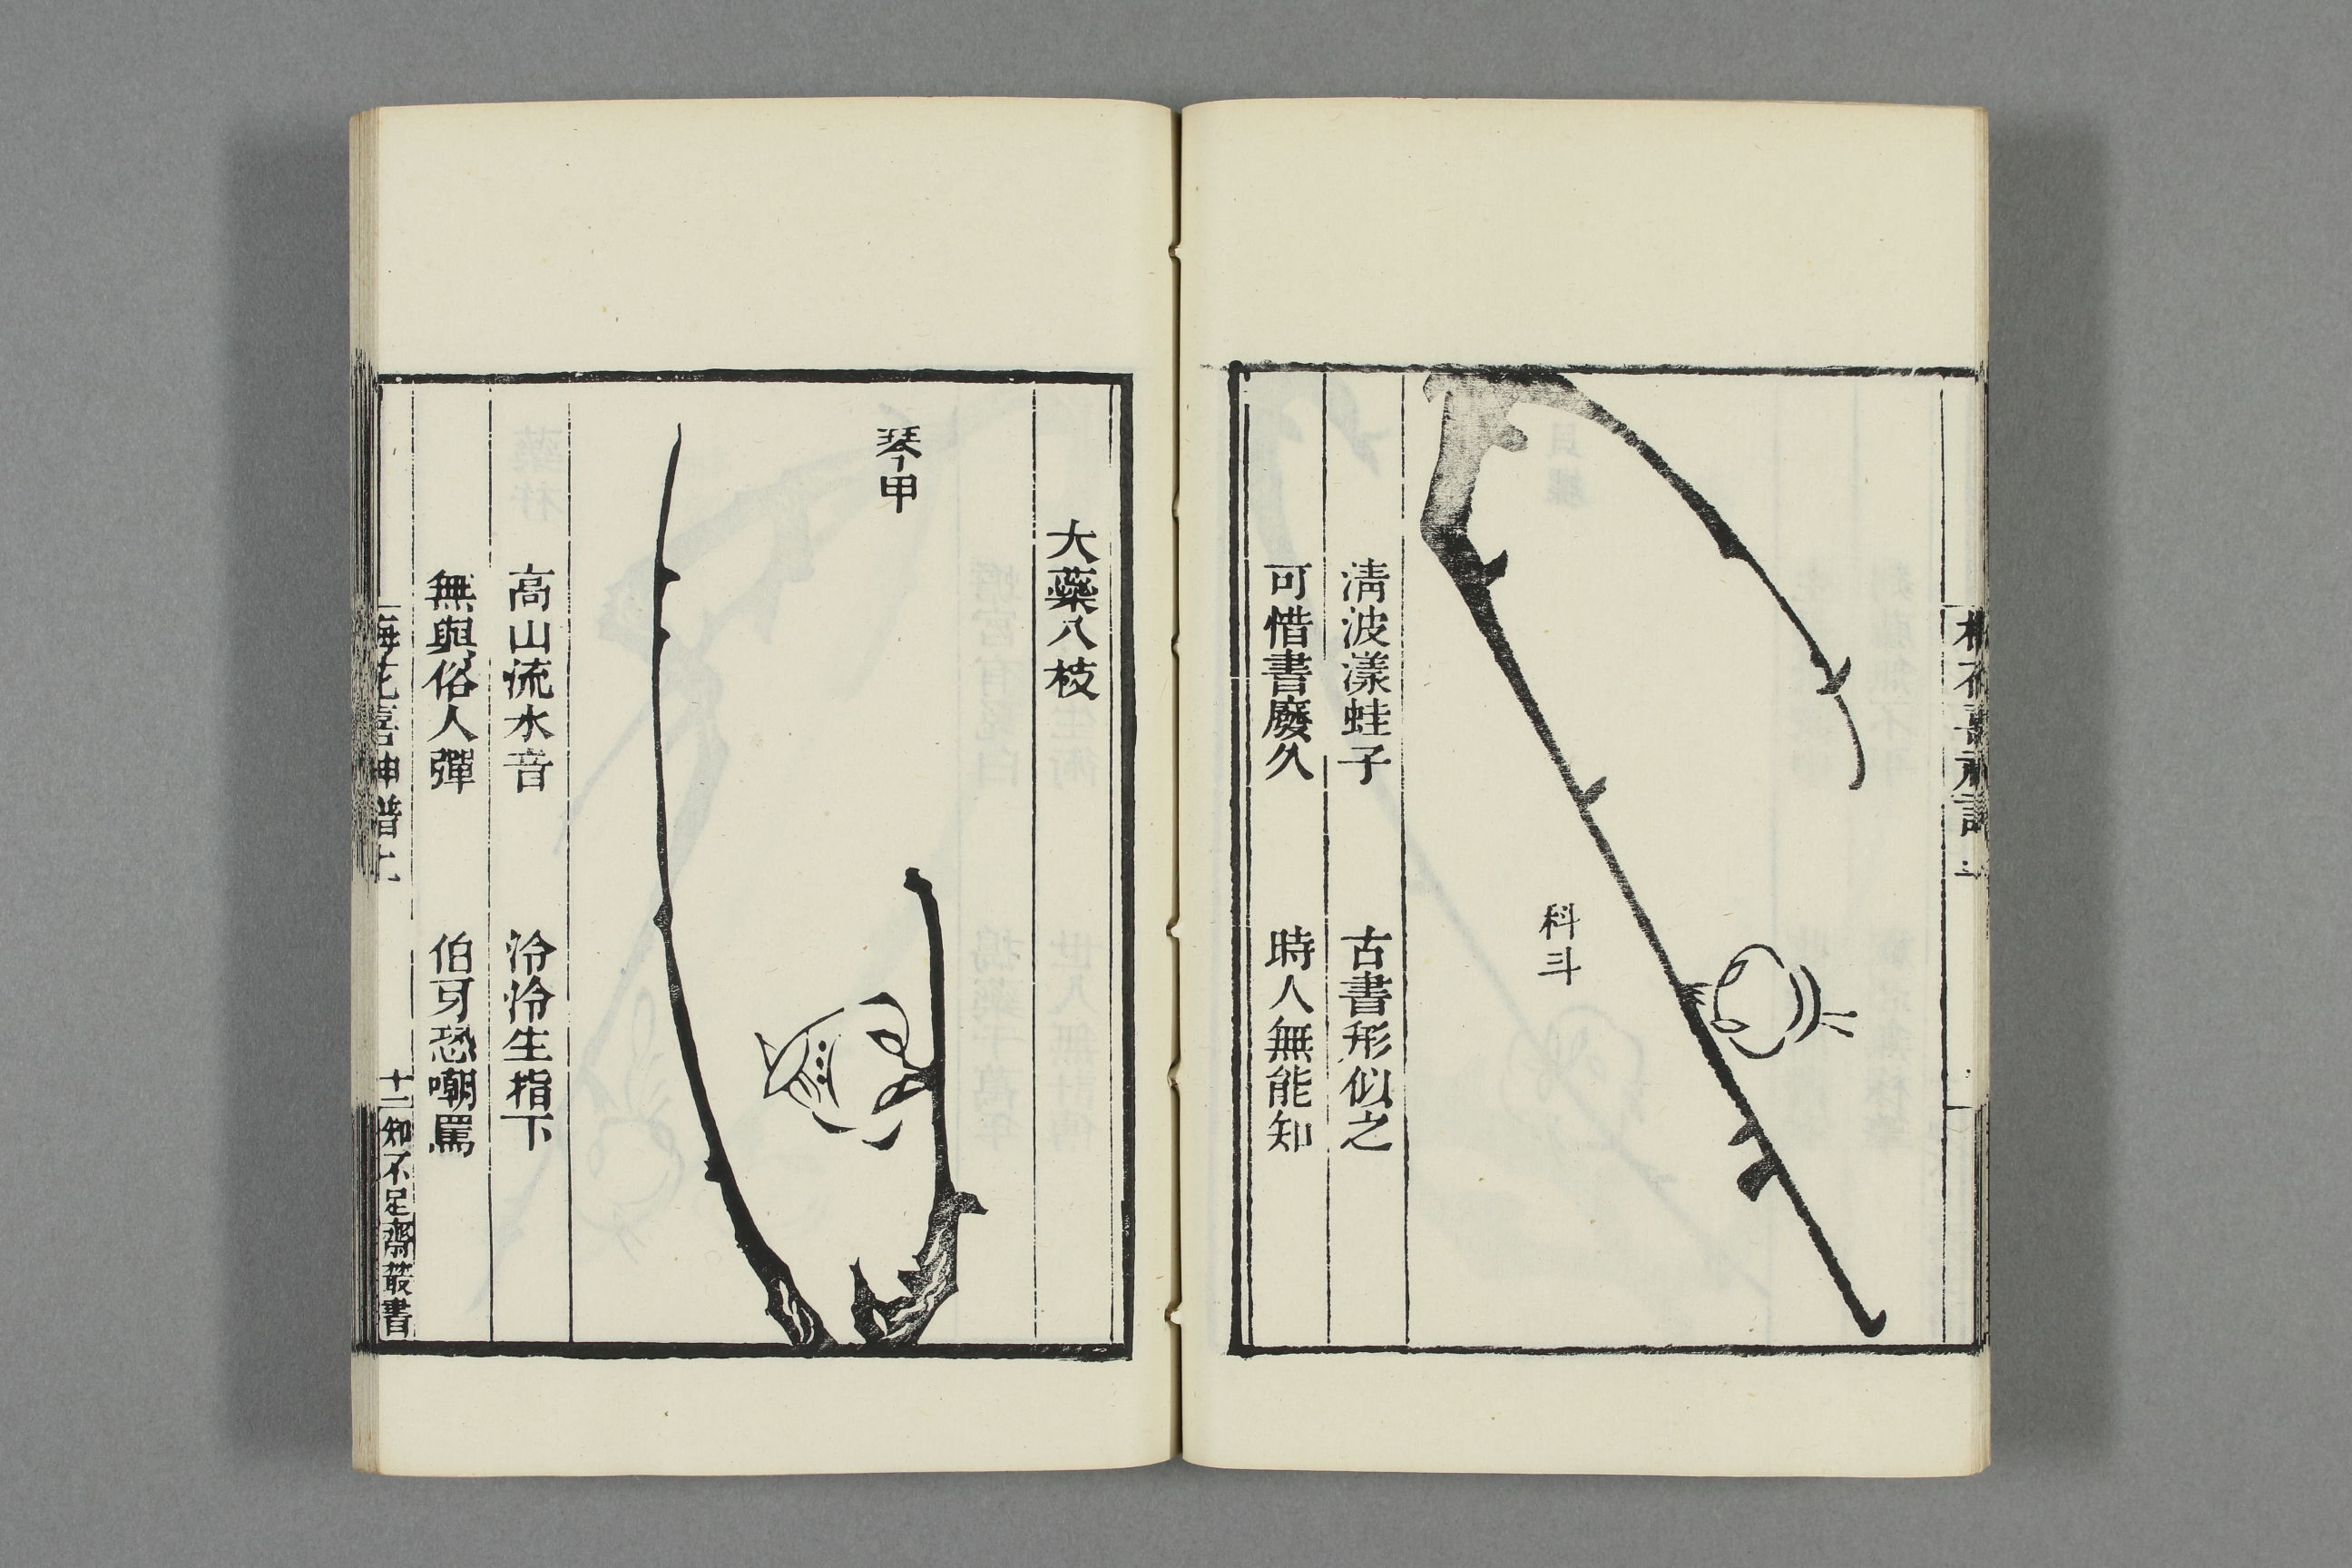 科斗
清波漾蛙子　古書形似之
可惜書廢久　時人無能知
大蘂八枝
琴甲
高山流水音　泠泠生指下
無與俗人彈　伯牙恐嘲罵
梅花喜神譜上
十二
知不足齋叢書